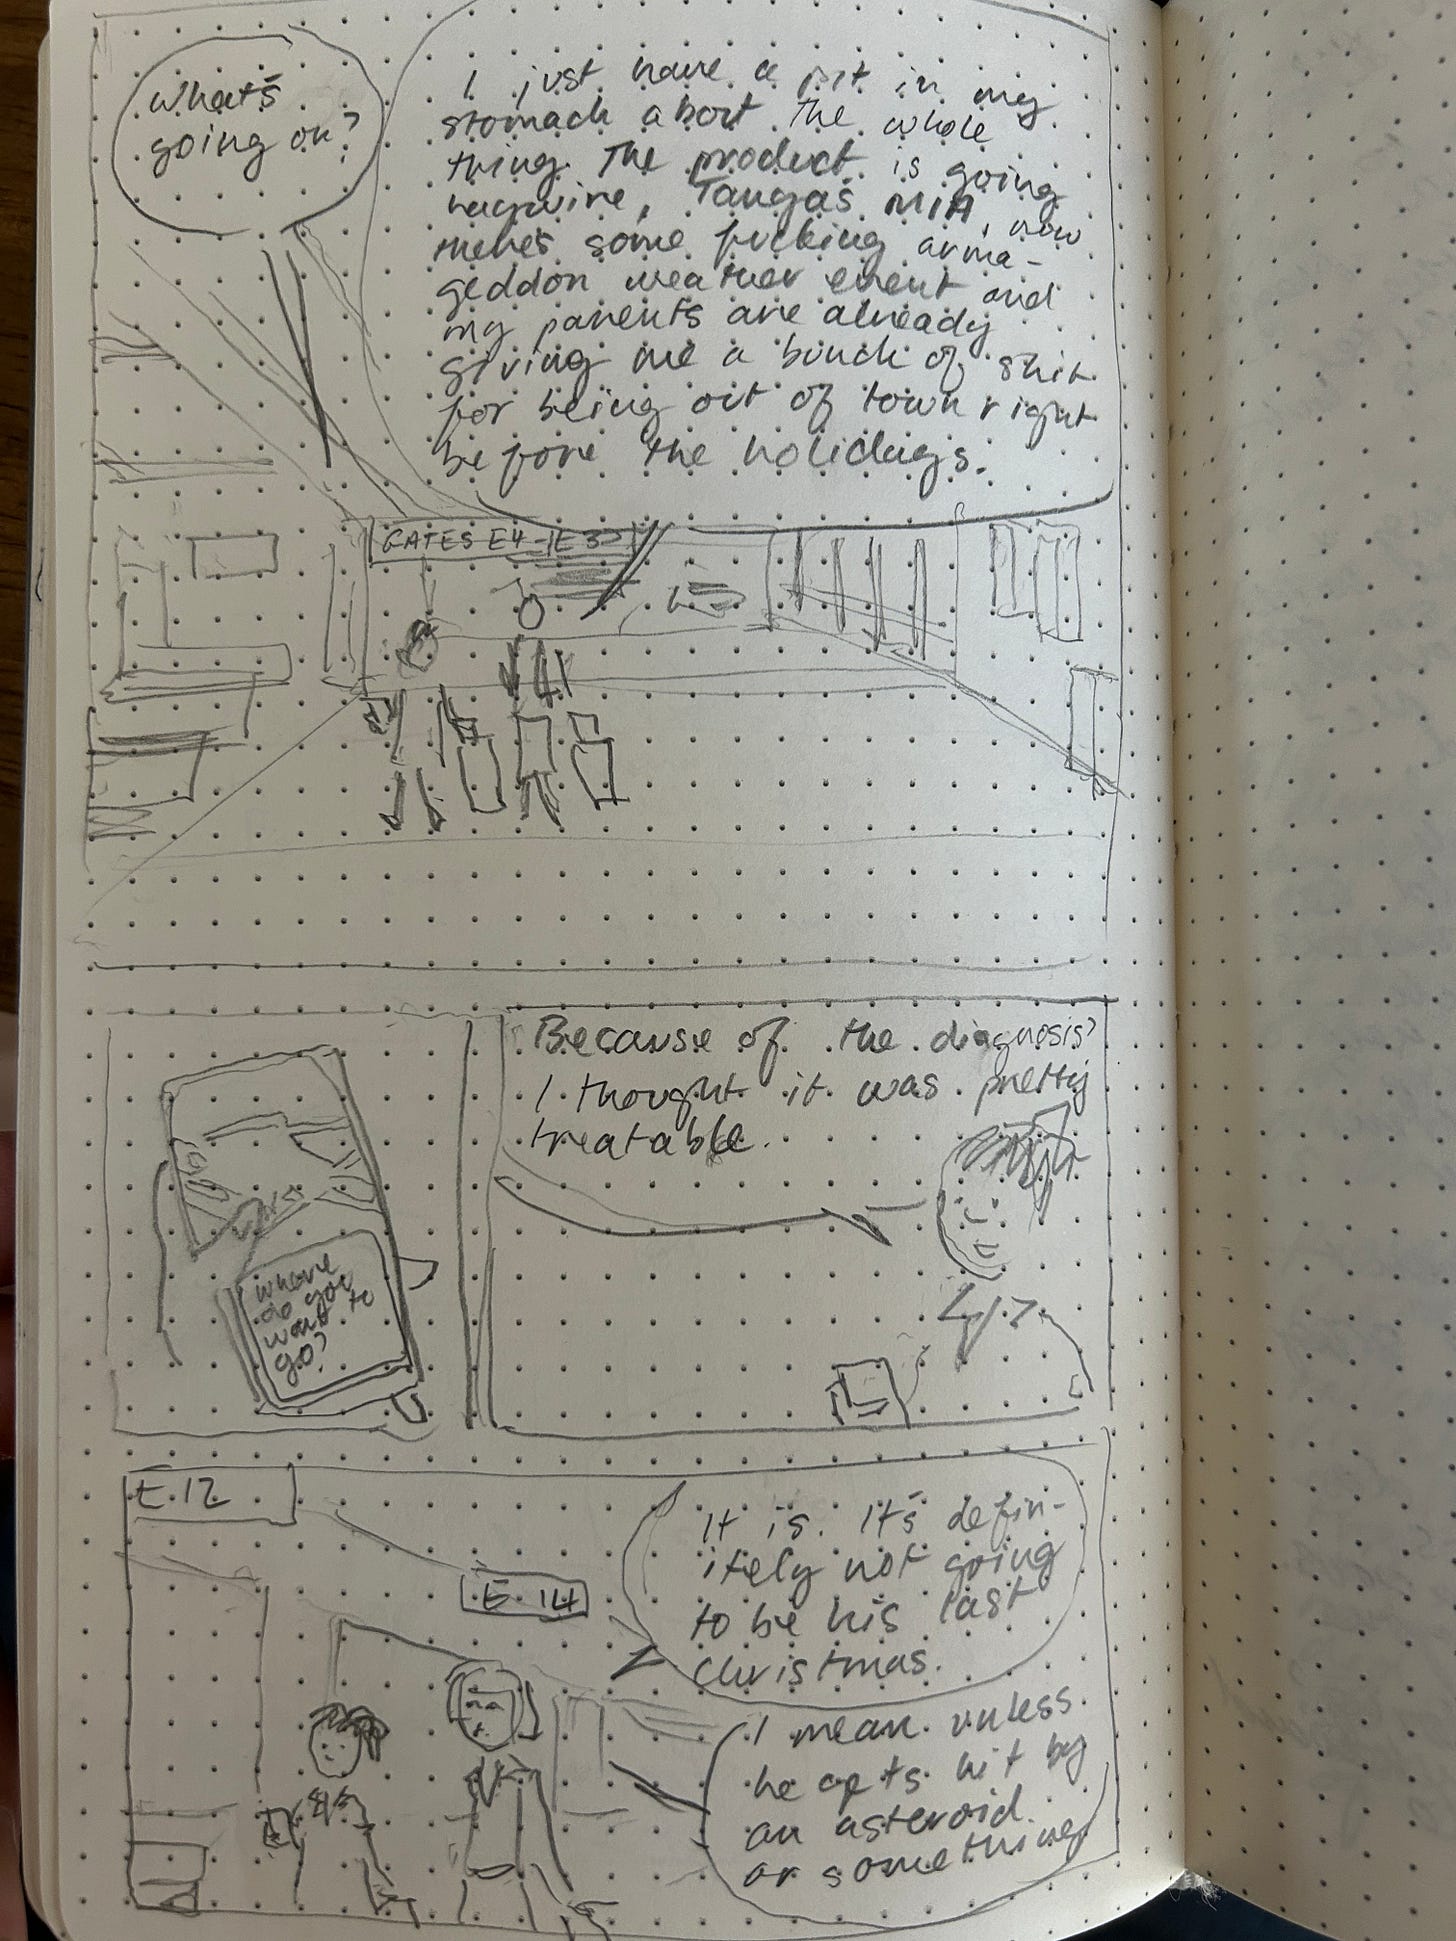 What's
going on?
I just have a pit in my
stomach about the whole
thing. The product is going
haywire, Tanga's MIA, now
there's some fucking arma-
geddon weather event and
my parents are already
giving me a bunch of shit
for being out of town right
before the holidays.
GATES E4-E3
Because of the diagnosis?
I thought it was pretty
treatable.
where
do you
want to
go?
E.12
E 14
It is. It's defin-
itely not going
to be his last
Christmas.
I mean unless
he gets hit by
an asteroid
or something